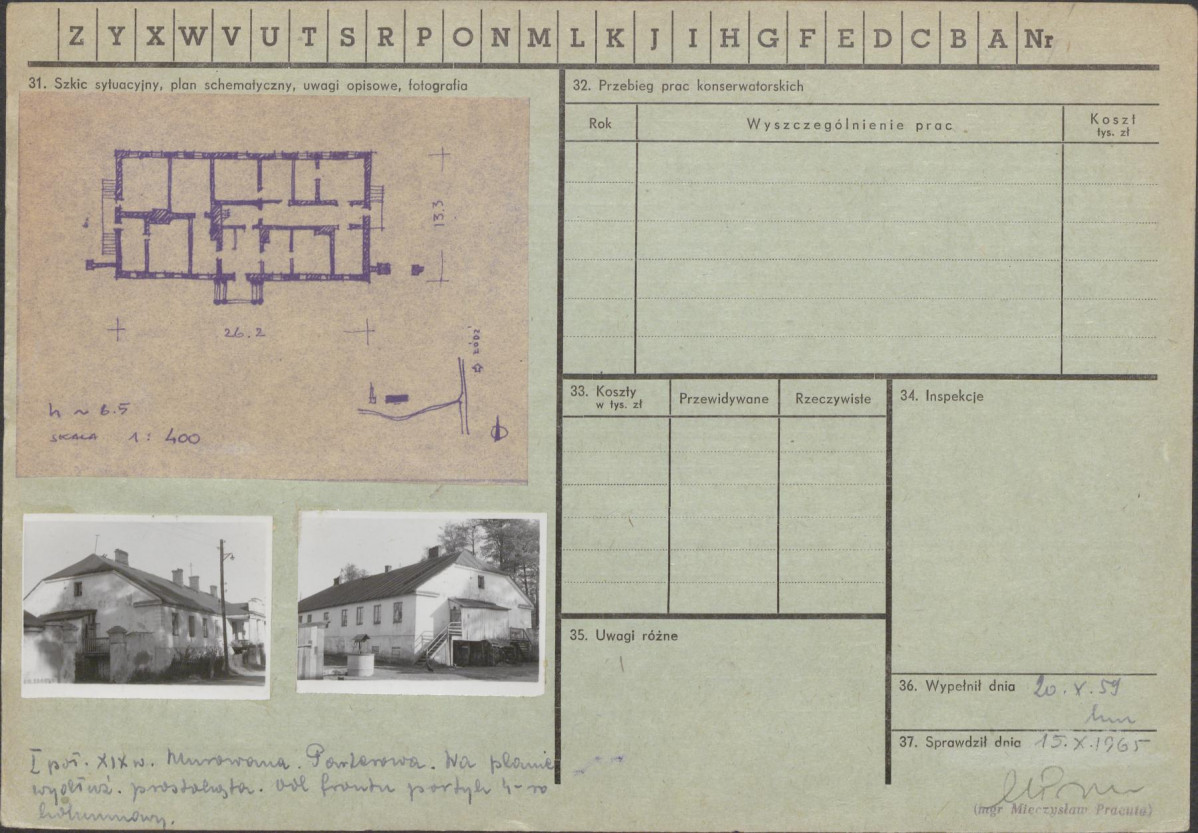 Z Y X W V U T S R P O N M L K J I H G F E D C B A Nr
31. Szkic sytuacyjny, plan schematyczny, uwagi opisowe, fotografia
13.3
26.2
ŁÓDŹ
h ~ 6.5
SKALA 1 : 400
I poł. XIX w. Murowana. Parterowa. Na planie
wydłuż. prostokąta. Od frontu portyk 4-ro
kolumnowy.
32. Przebieg prac konserwatorskich
Rok Wyszczególnienie prac Koszt
tys. zł
33. Koszty
w tys. zł
Przewidywane Rzeczywiste
34. Inspekcje
35. Uwagi różne
36. Wypełnił dnia 20.X.59
37. Sprawdził dnia 15.X.1965
(mgr Mieczysław Pracuta)